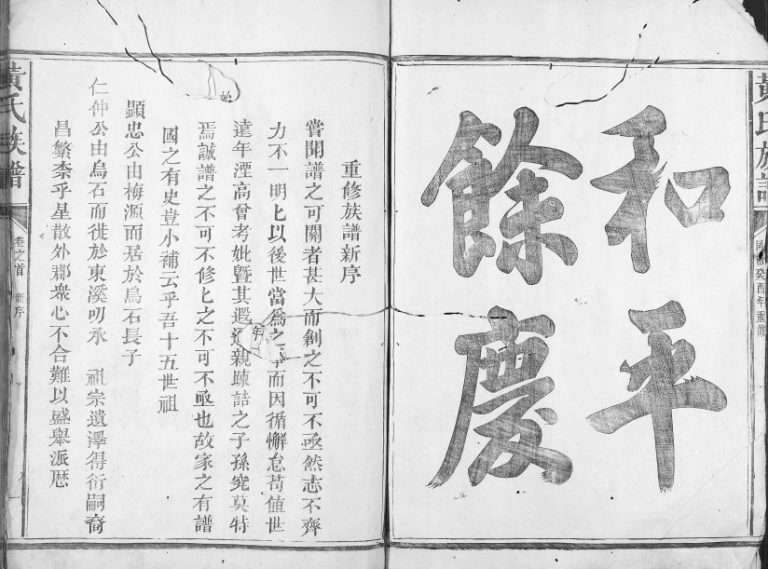 黃氏族譜
同治癸酉年重修
和平
餘慶
重修族譜新序
嘗聞譜之可關者甚大而創之不可不亟然志不齊
力不一明匕以後世當為之事而因循懈怠苟值世
遠年湮高曾考妣暨其遐邇親踈詰之子孫究莫特
焉誠譜之不可不修匕之不可不亟也故家之有譜
國之有史豈小補云乎吾十五世祖
顯忠公由梅源而居於烏石長子
仁仲公由烏石而徙於東溪叨承 祖宗遺澤得衍嗣裔
昌繁柰乎星散外郡衆心不合難以盛舉派厯
黃氏族譜
卷之首 新序